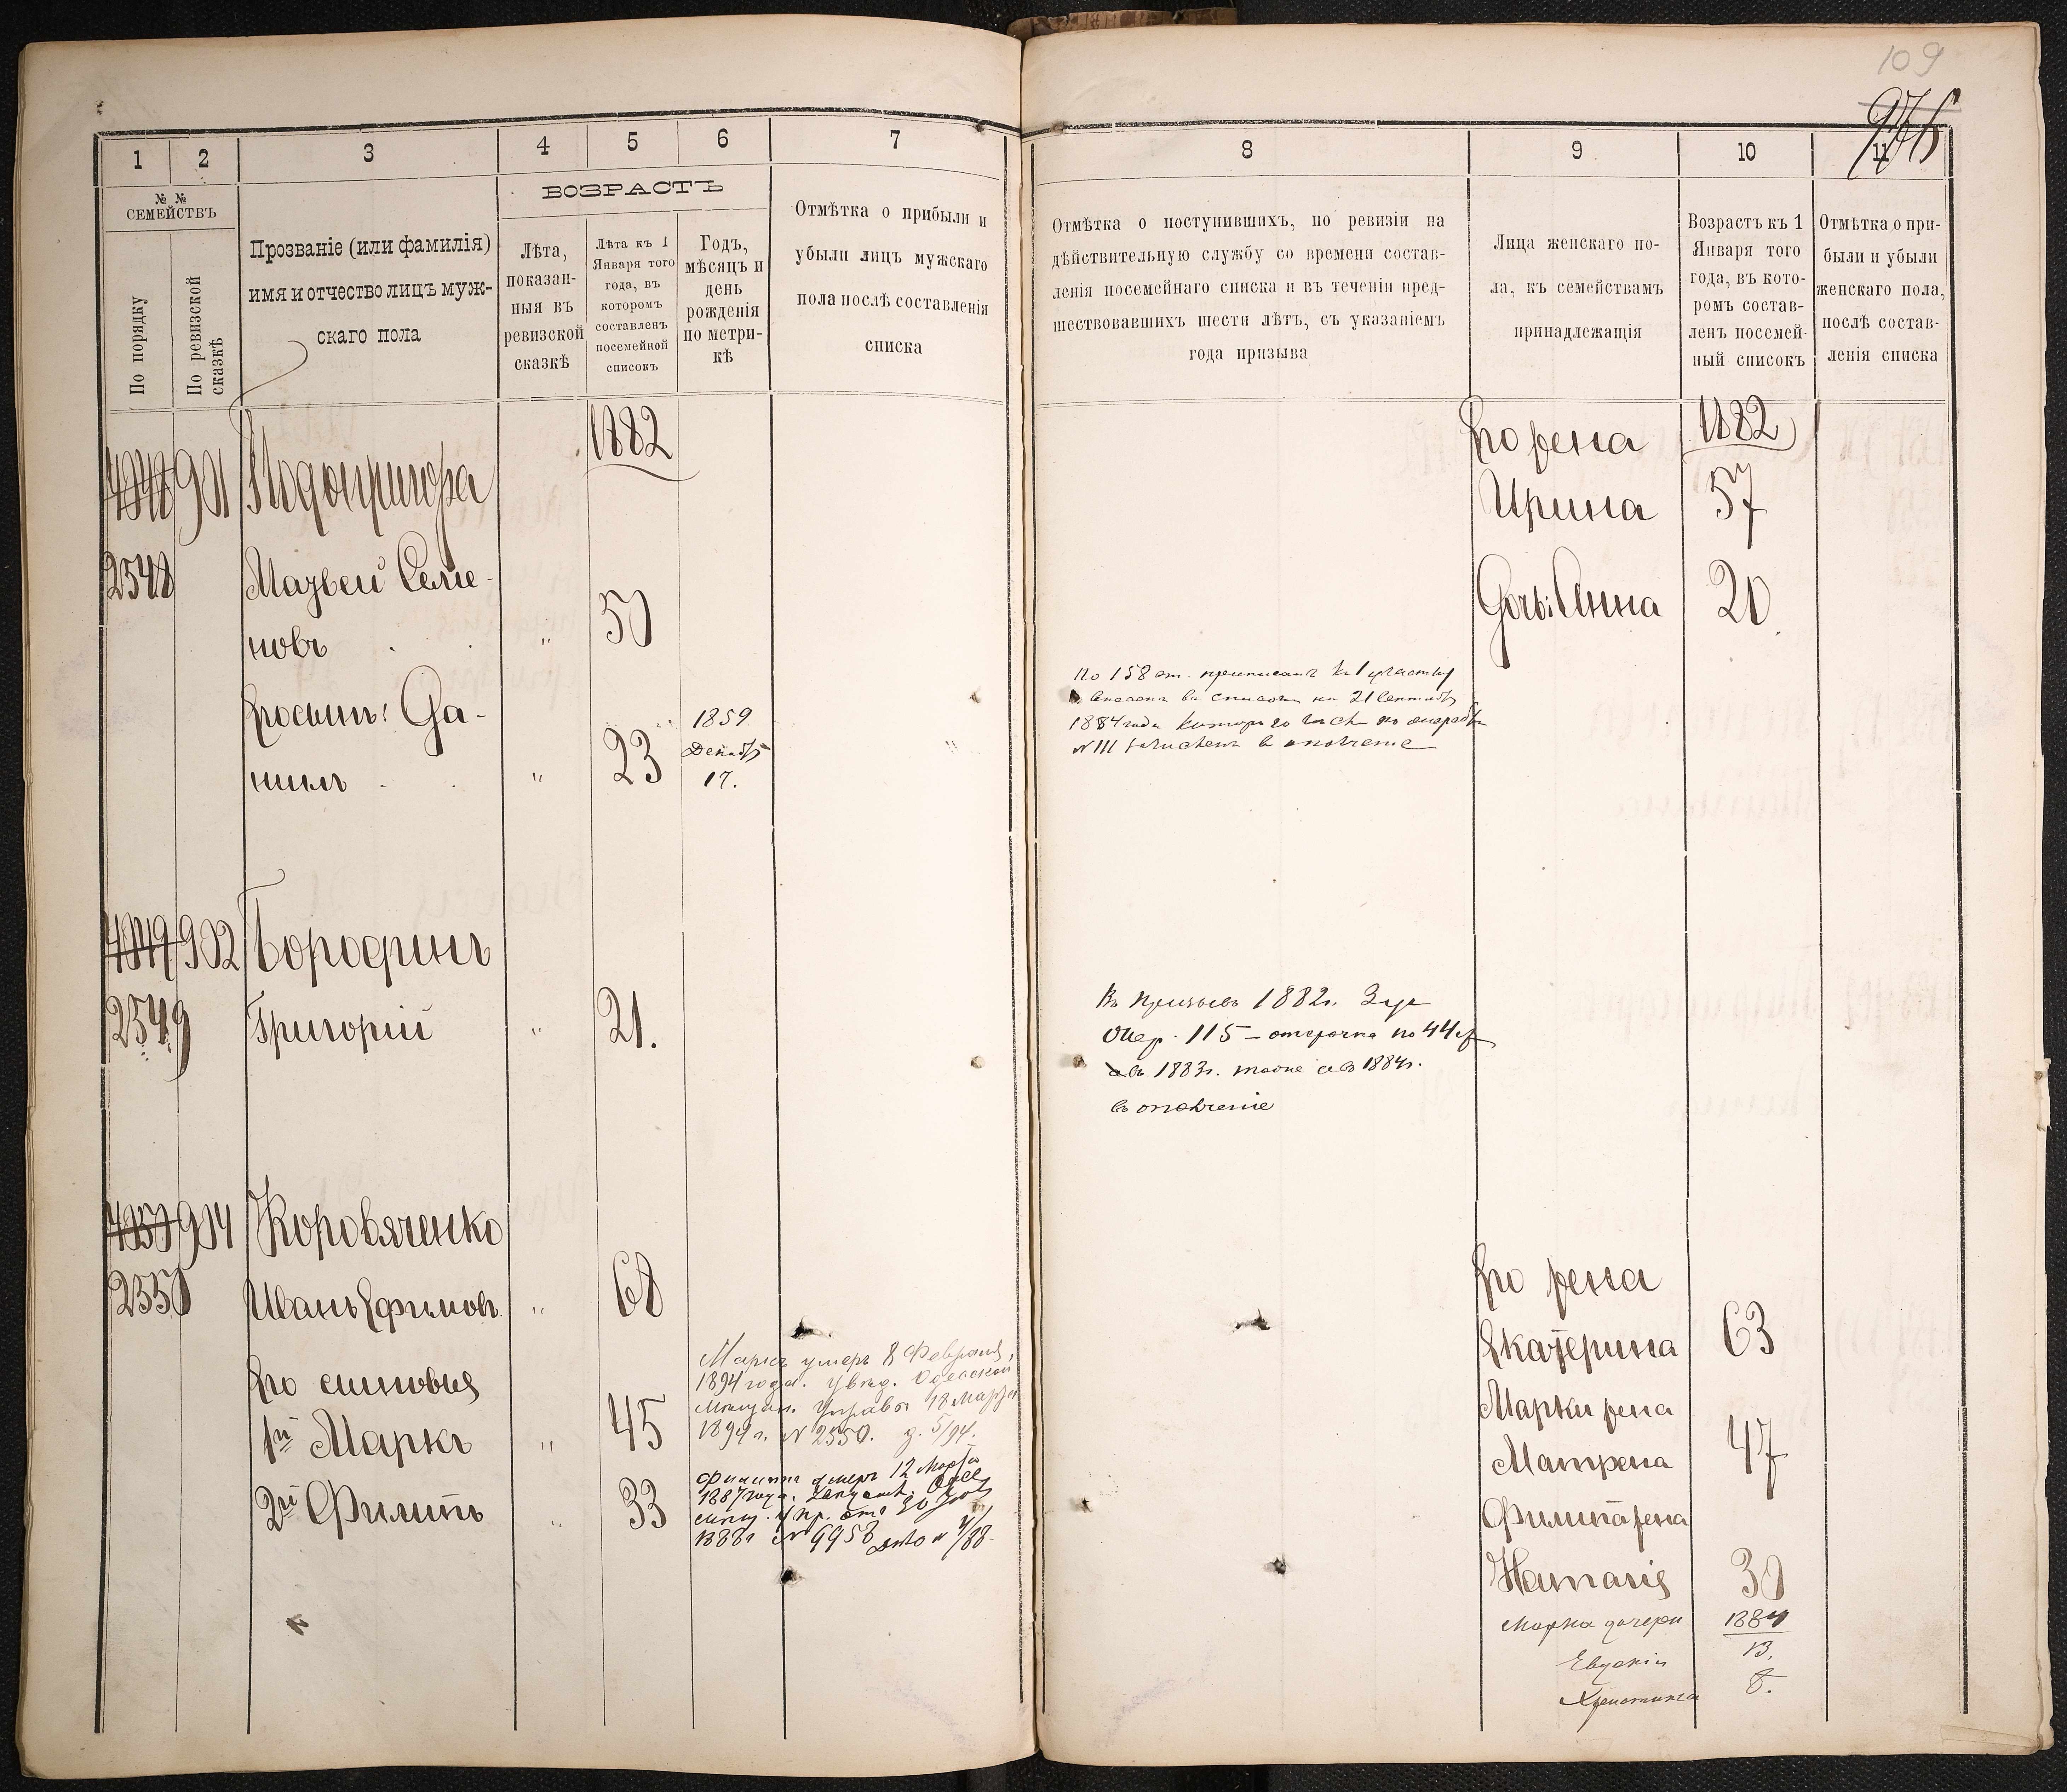 1
2
3
4
5
6
7
№ №
СЕМЕЙСТВЪ
По порядку
По ревизской сказкѣ
Прозваніе (или фамилія)
имя и отчество лицъ муж-
скаго пола
ВОЗРАСТЪ
Лѣта,
показан-
ныя въ
ревизской
сказкѣ
Лѣта къ 1
Января того
года, въ
которомъ
составленъ
посемейной
списокъ
Годъ,
мѣсяцъ и
день
рожденія
по метри-
кѣ
Отмѣтка о прибыли и
убыли лицъ мужскаго
пола послѣ составленія
списка
1882
4048 901 Подопригора
2548 Матвей Семе-
новъ " 50
Его сынъ: Да-
нилъ " 23 1859
Декабр
17.
4049 902 Бородинъ
2549 Григорій " 21.
4050 904 Коровяченко
2550 Иванъ Ефимовъ " 68
Его сыновья
1й Маркъ " 45
Маркъ умеръ 8 Февраля,
1894 года. увѣд. Одесской
Мѣщан. Управы 18 Марта
1894 г. № 2550. д. 5/94.
2й Филипъ " 33
Филиппъ умеръ 12 Марта
1887 года.
1888 г № 6958 дѣло № 4/88.
109
8
9
10
11
Отмѣтка о поступившихъ, по ревизіи на
дѣйствительную службу со времени состав-
ленія посемейнаго списка и въ теченіи пред-
шествовавшихъ шести лѣтъ, съ указаніемъ
года призыва
Лица женскаго по-
ла, къ семействамъ
принадлежащія
Возрастъ къ 1
Января того
года, въ кото-
ромъ состав-
ленъ посемей-
ный списокъ
Отмѣтка о при-
были и убыли
женскаго пола,
послѣ состав-
ленія списка
Его жена 1882
Ирина 57
Дочь: Анна 20
По 158 ст. приписанъ къ 1 участку
внесенъ въ списокъ на 21 Сентябр
1884 года
№ 111 зачисленъ в ополченіе
Въ призывъ 1882 г.
Очер. 115 – отсрочка по 44 ст
въ 1883 г. тоже и въ 1884 г.
въ ополченіе
Его жена
Екатерина 63
Марка жена
Матрена 47
Филипа жена
Наталія 30
Марка дочери 1884
Евдокія 13.
Христина 8.